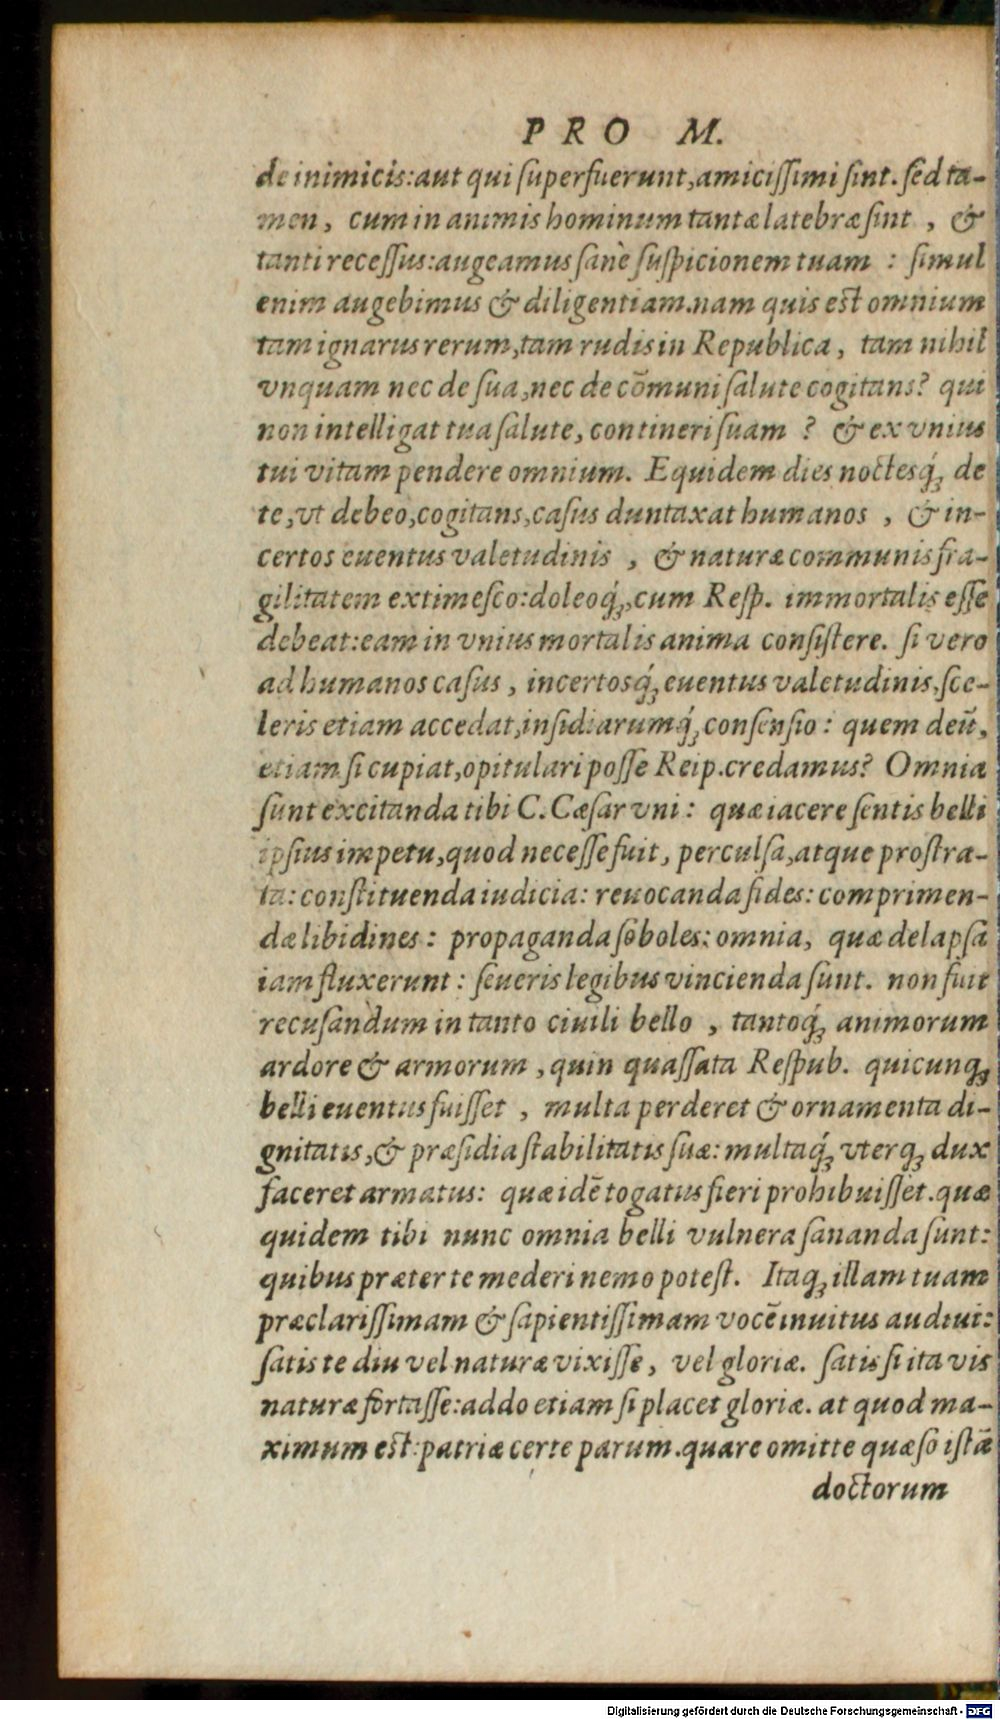 PRO M.
de inimicis: aut qui ſuperfuerunt, amiciſſimi ſint. ſed ta-
men, cum in animis hominum tantæ latebræ ſint, &
tanti receſſus: augeamus ſanè ſuſpicionem tuam : ſimul
enim augebimus & diligentiam. nam quis est omnium
tam ignarus rerum, tam rudis in Republica, tam nihil
vnquam nec de ſua, nec de cōmuni ſalute cogitans? qui
non intelligat tua ſalute, contineri ſuam ? & ex vnius
tui vitam pendere omnium. Equidem dies noctesq́; de
te, vt debeo, cogitans, caſus duntaxat humanos , & in-
certos euentus valetudinis , & naturæ communis fra-
gilitatem extimeſco: doleoq́;, cum Reſp. immortalis eſſe
debeat: eam in vnius mortalis anima conſiſtere. ſi vero
ad humanos caſus, incertosq́; euentus valetudinis, ſce-
leris etiam accedat, inſidiarumq́; conſenſio: quem deū,
etiam ſi cupiat, opitulari poſſe Reip. credamus? Omnia
ſunt excitanda tibi C. Cæſar vni: quæ iacere ſentis belli
ipſius impetu, quod neceſſe fuit, perculſa, atque proſtra-
ta: conſtituenda iudicia: reuocanda fides: comprimen-
dæ libidines: propaganda ſoboles: omnia, quæ delapſa
iam fluxerunt: ſeueris legibus vincienda ſunt. non fuit
recuſandum in tanto ciuili bello , tantoq́; animorum
ardore & armorum, quin quaſſata Reſpub. quicunq;
belli euentus fuiſſet , multa perderet & ornamenta di-
gnitatis, & præſidia ſtabilitatis ſuæ: multaq́; vterq; dux
faceret armatus: quæ idē togatus fieri prohibuiſſet. quæ
quidem tibi nunc omnia belli vulnera ſananda ſunt:
quibus præter te mederi nemo poteſt. Itaq; illam tuam
præclariſſimam & ſapientiſſimam vocē inuitus audiui:
ſatis te diu vel naturæ vixiſſe, vel gloriæ. ſatis ſi ita vis
naturæ fortaſſe: addo etiam ſi placet gloriæ. at quod ma-
ximum est: patriæ certe parum. quare omitte quæſo iſtā
doctorum
Digitalisierung gefördert durch die Deutsche Forschungsgemeinschaft - DFG